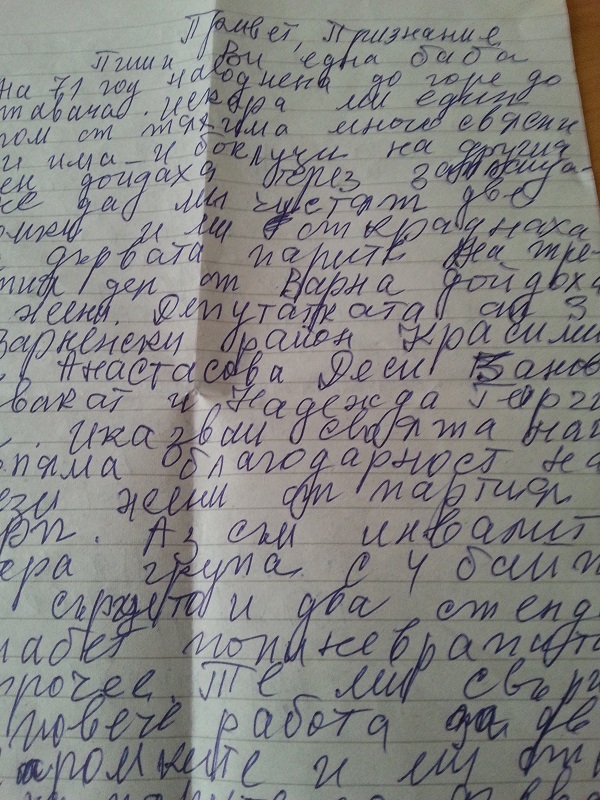 Привет, Признание
Пиши Ви една баба
На 71 год наводнена до горе до
тавача. Искара ми един
ром от такима много свлени
и има и боклуци на другия
ен дойдаха через
не да ми чустят две
омки и ми откраднаха
дървата парите На тре-
тия ден от Варна дойдоха
жени. Депутатката от 3
Варненски район Красими
Анастасова Деси Банов
вакат и Надежда Герги
. Исказваи своята най
ляма благодарност на
ези жени от партия
ерп. Аз съм инвалит
ера група с 4 баип
сърцето и два стенд
иабет полиневрапит
прочее. Те ми свърш
повече работа за две
громките и ми от